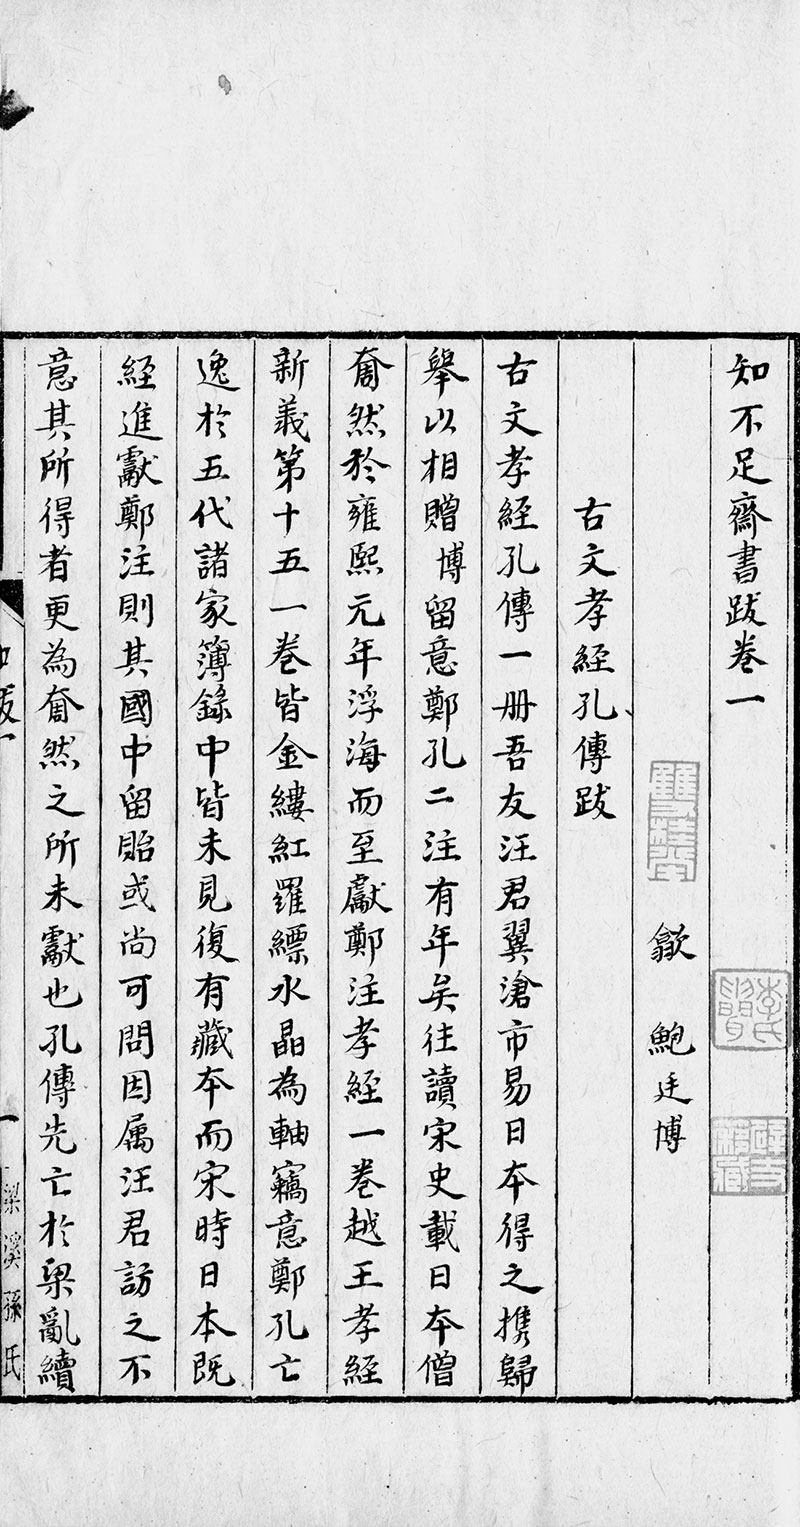 知不足齋書跋卷一
歙　鮑廷博
古文孝經孔傳跋
古文孝經孔傳一册吾友汪君翼滄市易日本得之携歸
舉以相贈博留意鄭孔二注有年矣往讀宋史載日本僧
奝然於雍熙元年浮海而至獻鄭注孝經一卷越王孝經
新義第十五一卷皆金縷紅羅縹水晶為軸竊意鄭孔亡
逸於五代諸家簿錄中皆未見復有藏本而宋時日本既
經進獻鄭注則其國中留貽或尚可問因属汪君訪之不
意其所得者更為奝然之所未獻也孔傳先亡於梁亂續
一
梁溪孫氏